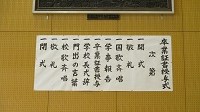 卒業証書授与式
次第
一 開式
一 敬礼
一 国歌斉唱
一 学事報告
一 卒業証書授与
一 学校長式辞
一 門出の言葉
一 校歌斉唱
一 敬礼
一 閉式